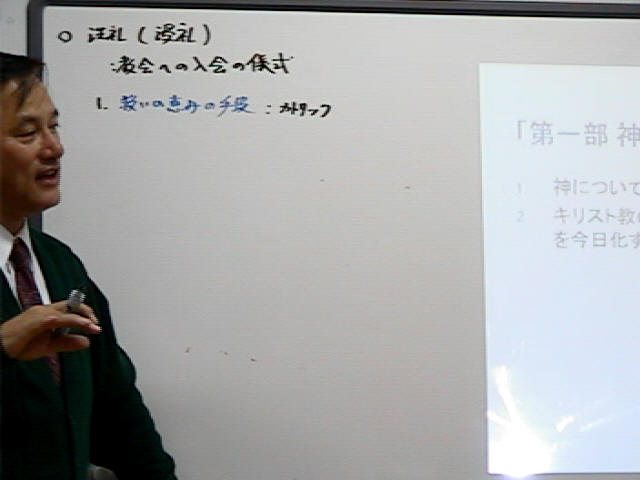 ○ 注礼(浸礼)
:教会への入会の儀式
1. 救いの恵みの手段:カトリック
「第一部 神
1 神について
2 キリスト教の
を今日化す